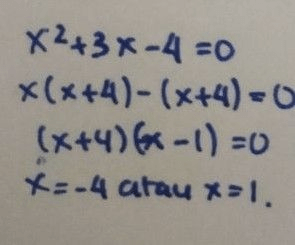 x²+3x-4=0
x(x+4)-(x+4)=0
(x+4)(x-1)=0
x=-4 atau x=1.